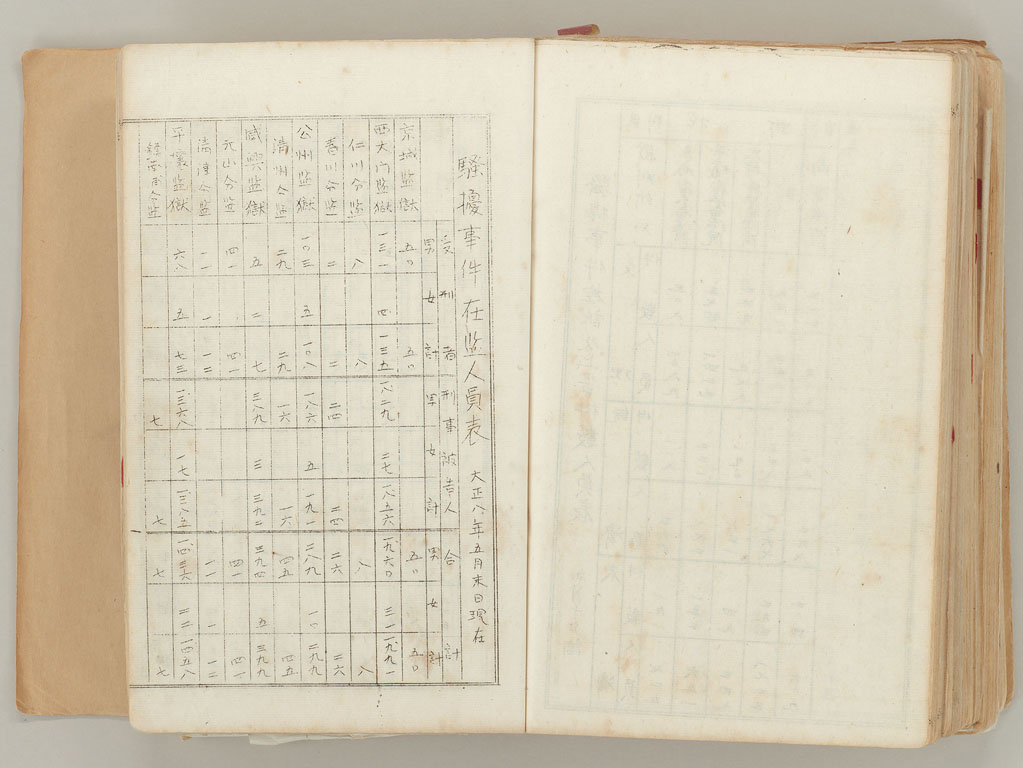 騷擾事件在監人員表 大正八年五月末日現在
受刑者 刑事被告人 合計
男 女 計 男 女 計 男 女 計
京城監獄 五〇 五〇 五〇 五〇
西大門監獄 一三一 四 一三五 一、八二九 二七 一、八五六 一、九六〇 三一 一、九九一
仁川分監 八 八 八 八
春川分監 二 二 二四 二四 二六 二六
公州監獄 一〇三 五 一〇八 一八六 五 一九一 二八九 一〇 二九九
淸州分監 二九 二九 一六 一六 四五 四五
咸興監獄 五 二 七 三八九 三 三九二 三九四 五 三九九
元山分監 四一 四一 四一 四一
淸津分監 一一 一 一二 一一 一 一二
平壤監獄 六八 五 七三 一、三六八 一七 一、三八五 一、四三六 二二 一、四五八
七 七 七 七